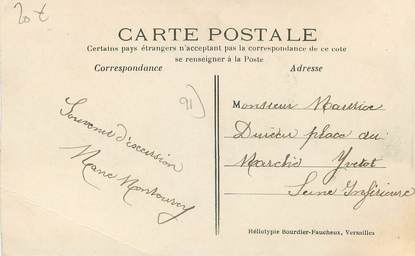 20 €
CARTE POSTALE
Certains pays étrangers n'acceptant pas la correspondance de ce coté
se renseigner à la Poste
Correspondance
Adresse
91)
Souvenir d'excursion
Monsieur Maurice
place du
Marché Yvetot
Seine Inférieure
Héliotypie Bourdier-Faucheux, Versailles